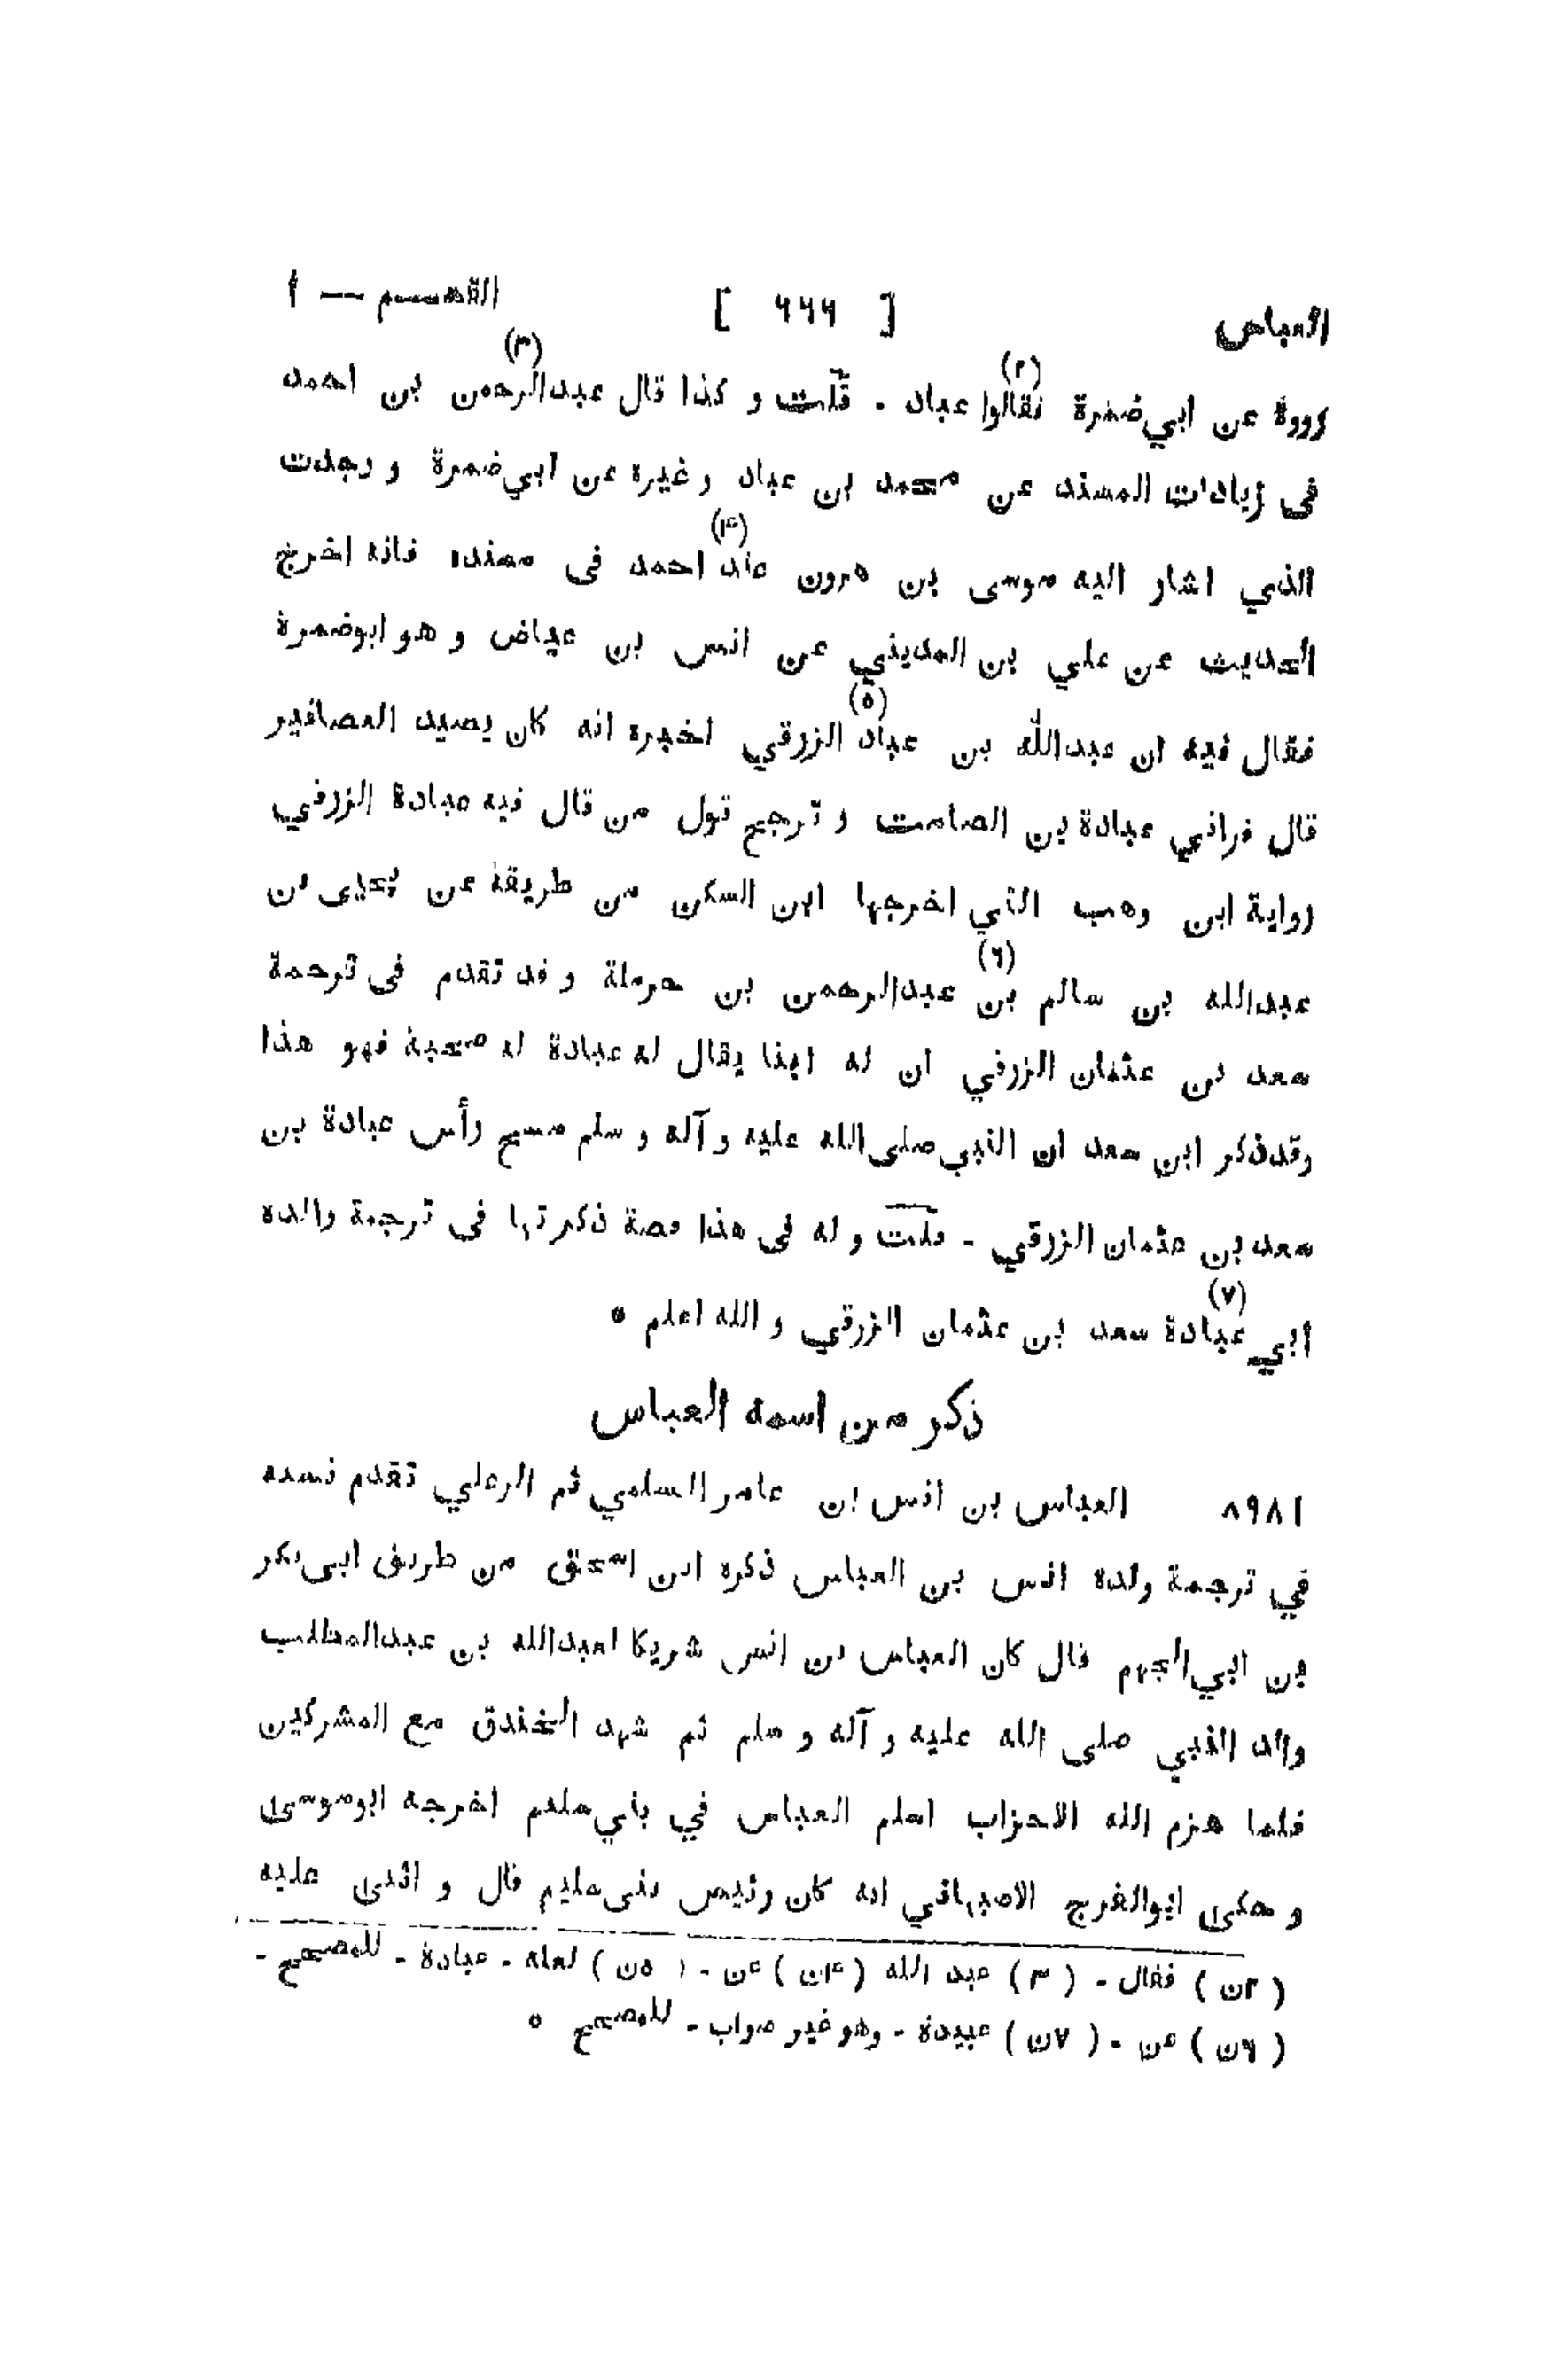 العباس [ ٦٦٦ ] القسم — ١
رووة عن ابي ضمرة فقالوا (٢) عباد . قلت و كذا قال عبدالرحمن (٣) بن احمد
فى زيادات المسند عن محمد بن عباد و غيره عن ابي ضمرة و وجدت
الذي اشار اليه موسى بن هرون عند (۴) احمد فى مسنده فانه اخرج
الحديث عن علي بن المديني عن انس بن عياض و هو ابوضمرة
فقال فيه ان عبدالله بن عباد (٥) الزرقي اخبره انه كان يصيد العصافير
قال فراني عبادة بن الصامت و ترجح قول من قال فيه عبادة الزرقي
رواية ابن وهب التي اخرجها ابن السكن من طريقة عن يحيى بن
عبدالله بن سالم بن (٦) عبدالرحمن بن حرملة و قد تقدم فى ترجمة
سعد بن عثمان الزرقي ان له ابنا يقال له عبادة له صحبة فهو هذا
وقدذكر ابن سعد ان النبي صلى الله عليه و آله و سلم مسح رأس عبادة بن
سعد بن عثمان الزرقي - قلت و له فى هذا قصة ذكرتها فى ترجمة والده
ابي عبادة (٧) سعد بن عثمان الزرقي و الله اعلم *
ذكر من اسمه العباس
٨٩٨١ العباس بن انس بن عامر السلمي ثم الرعلي تقدم نسبه
في ترجمة ولده انس بن العباس ذكره ابن اسحق من طريق ابى بكر
بن ابي الجهم قال كان العباس بن انس شريكا لعبدالله بن عبدالمطلب
والد النبي صلى الله عليه و آله و سلم ثم شهد الخندق مع المشركين
فلما هزم الله الاحزاب اسلم العباس في بني سليم اخرجه ابوموسى
و حكى ابوالفرج الاصبهاني انه كان رئيس بنى سليم قال و اثنى عليه
( ٢ن ) فقال - ( ٣ ) عبد الله ( ۴ن ) عن - ( ٥ن ) لعله - عبادة - للمصحح -
( ٦ن ) عن - ( ٧ن ) عبيدة - وهو غير صواب - للمصحح *